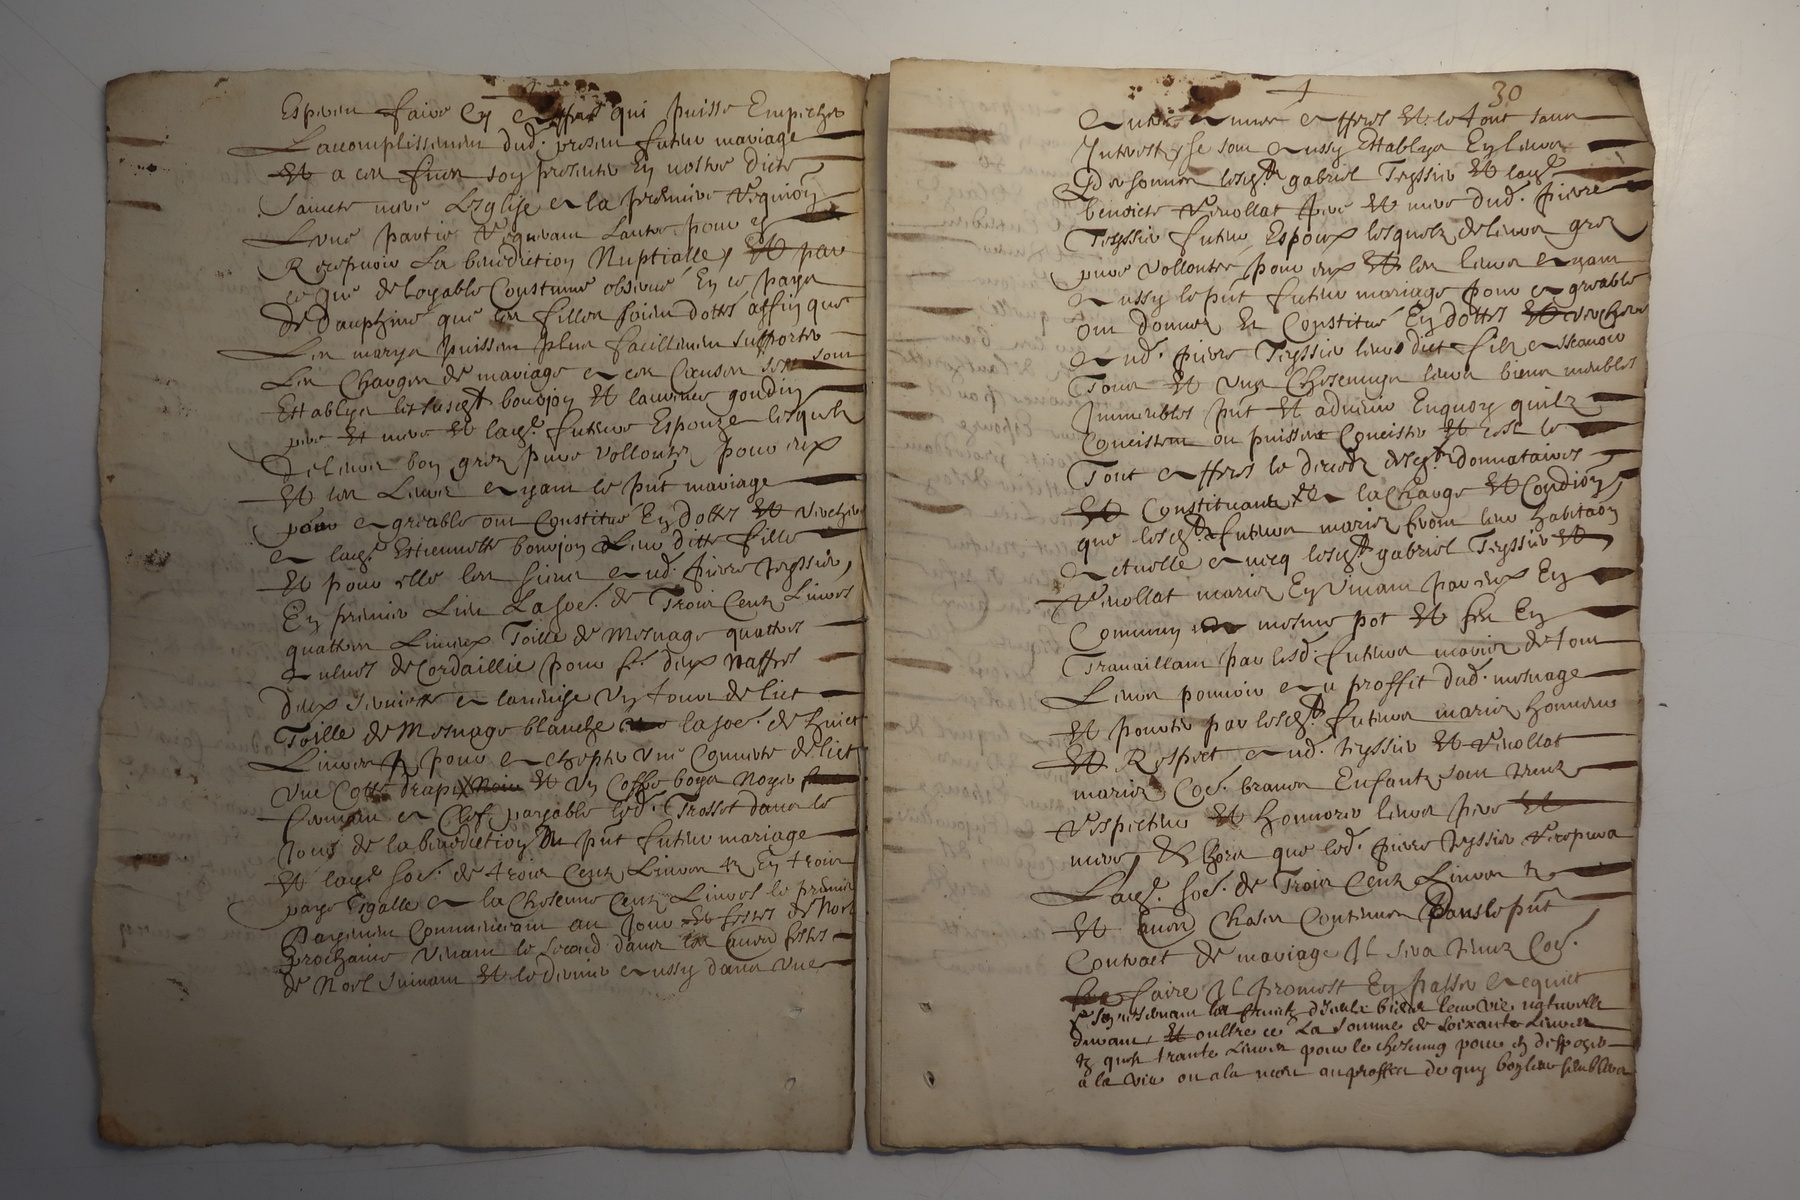 faire et qui puisse Empecher
L'acomplissement dud. presen futur mariage
Et a ces fins soy presenter En nostre dicte
Saincte mere L'eglise a la premiere requi^on
L'une partie requerant Lautre pour y
Recepvoir La benediction Nuptialle, Et par
ce que de loyable Coustume observé En ce pays
de Dauphine que les filles soien dottes affin que
Les marys puissen plus facillemen supporter
Les Charges de mariage a ces Causes se sont
Establys les susd. boujon Et laurence goudin
pere Et mere Et lad. future Espouze lesquels
De leurs bon grez pure vollonter pour eux
Et les Leurs ayant le pnt mariage
pour agreable ont Constitué En dotte Et verchere
a lad. Estiennette boujon Leur ditte fille
Et pour elle les siens aud. pierre teyssier,
En premier Lieu La so^e. de Trois Centz Livres
quattre Linceux Toille de mesnage quattre
aulnes de Cordaillie pour f^e. deux nappes
deux serviette a la Venise un tour de lict
Toille de mesnage blanche la so^e. de huict
Livres pour achepter une Couverte de lict
une Cotte drap Et un Coffre boys noyer
fermant a Clef, payable led. Trosset dans le
Jour de la benediction du pnt futur mariage
Et lad. so^e. de trois Centz Livres tz En trois
paye Esgalle a la Chascune Cent Livres le premier
payemen Commencant au Jour Et festes de Noel
prochaine venant le second dans les festes
de Noel suivant Et le dernier aussy dans une
4 30
autre annee apres Et le tout sans
Interest, Se sont aussy Establys En leurs
Personnes lesd. gabriel Teyssier Et lad.
benoicte Venollat pere Et mere dud. pierre
Teyssier futur Espoux lesquels de leurs grez
pure vollonter pour eux Et les leurs ayant
aussy le pnt futur mariage pour agreable
ont donnes Et Constitué En dotte Et verchere
aud. pierre Teyssier leur dict filz assavoir
Tous Et uns Chascungs leurs biens meubles
Immeubles pnt Et advenir Enquoy quilz
Concistent ou puissent Concister Et cest le
Tout apres le deces desd. donnataires
Et Constituants Et a la Charge Et Condi^on,
que lesd. futurs maries feront leur habita^on
actuelle avecq lesd. gabriel Teyssier Et
Venollat maries En Vivant par eux En
Commun mesme pot Et feu En
Travaillant par lesd. futurs maries de tout
Leurs pouvoir au proffit dud. mesnage
Et porter par lesd. futurs maries honneur
Et Respect aud. teyssier Et Venollat
maries Co^e. braves Enfants sont tenus
respecter Et honnorer leurs pere Et
mere, Et hors que led. pierre teyssier recepvra
Lad. so^e. de Trois Centz Livres tz
Et autres Choses Contenues Dans le pnt
Contract de mariage Il sera tenuz Co^e.
faire Il promest En passer acquict
se reservant les fruictz d'iceulx biens leur vie naturelle
durant, Et oultre ce La somme de soixante Livres
tz quest trante Livres pour le chascung pour en disposer
a la vie ou a la mort au proffict de quy bon leur semblera